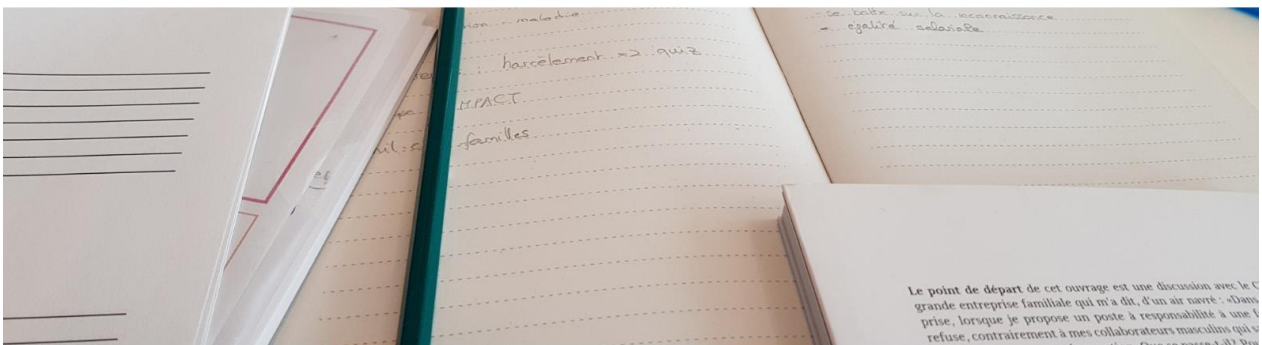 maladie
harcèlement => quiz
MPACT
familles
- se battre sur la reconnaissance
- égalité salariale
Le point de départ de cet ouvrage est une discussion avec le C
grande entreprise familiale qui m'a dit, d'un air navré : «Dans
prise, lorsque je propose un poste à responsabilité à une f
refuse, contrairement à mes collaborateurs masculins qui s